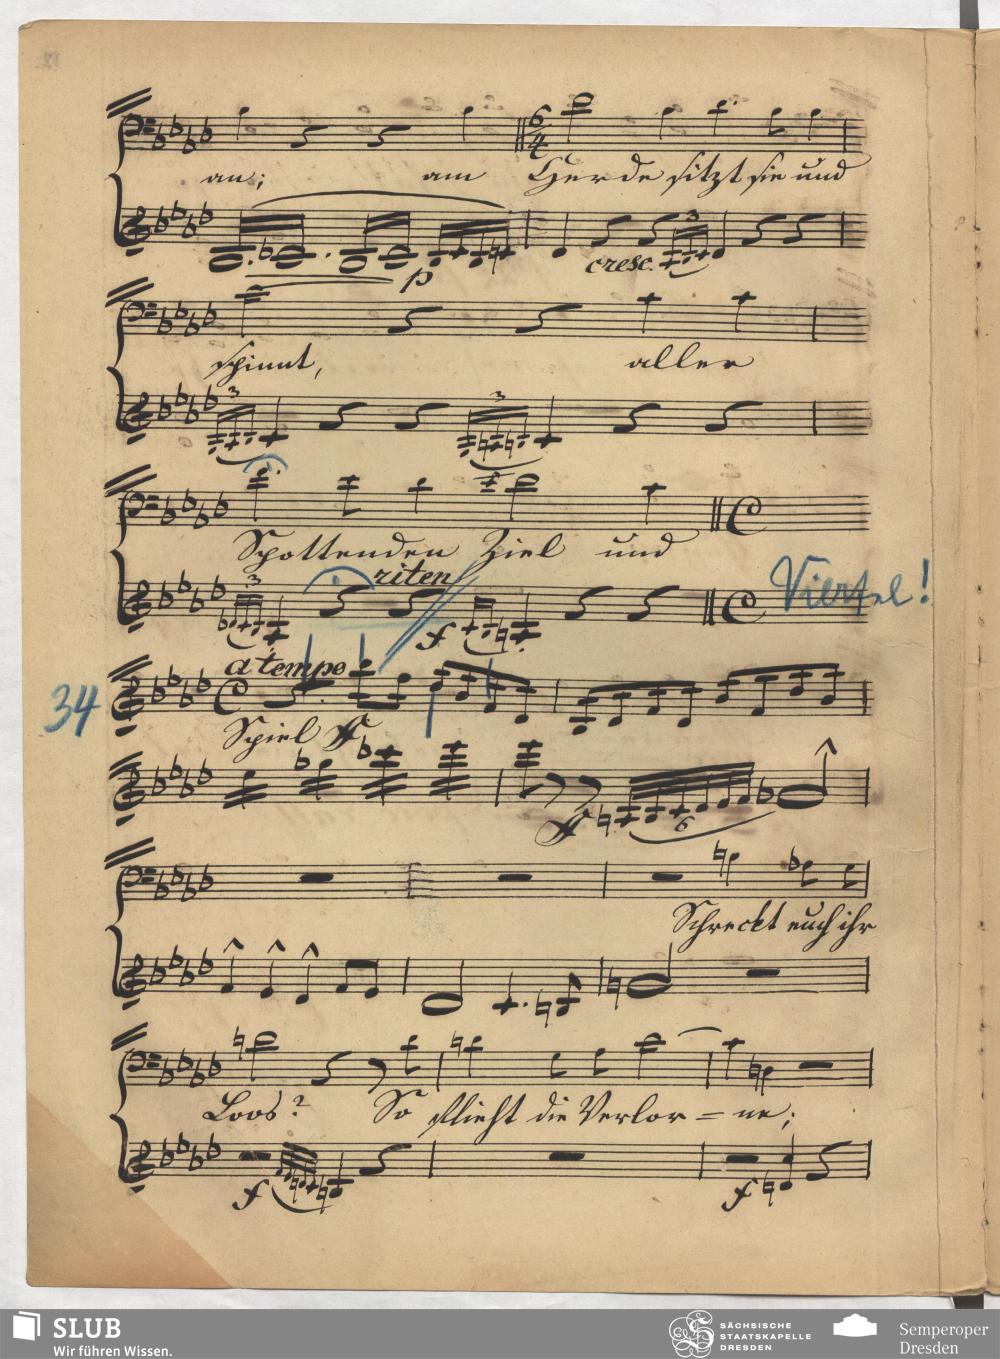 an; am Herde sitzt sie und
3
cresc.
p
spinnt, aller
3 3
Spottenden Ziel und
3 riten
f
Viertel!
a tempo
34
Spiel ff
ff 6
Schreckt euch ihr
Loos? So flieht die Verlor = ne;
f f
SLUB
Wir führen Wissen.
SÄCHSISCHE
STAATSKAPELLE
DRESDEN
Semperoper
Dresden